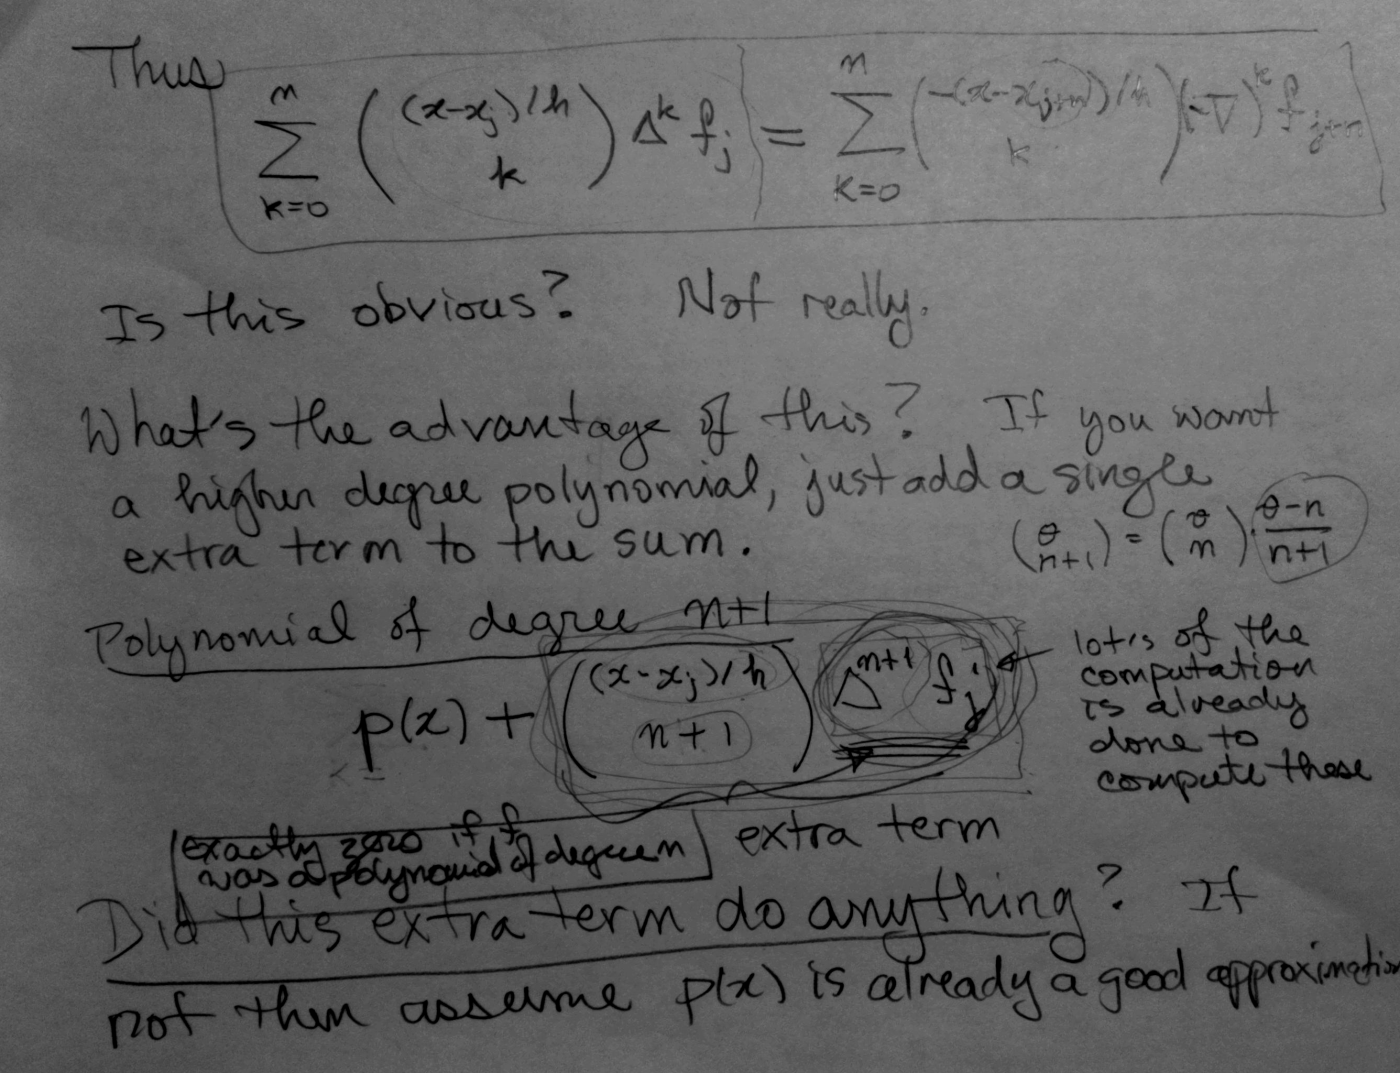 Thus
n n
∑ ( (x-x_j)/h ) Δ^k f_j = ∑ ( -(x-x_{j+n})/h ) (-∇)^k f_{j+n}
k=0 k k=0 k
Is this obvious? Not really.
What's the advantage of this? If you want
a higher degree polynomial, just add a single
extra term to the sum.
(θ n+1) = (θ n) · (θ-n)/(n+1)
Polynomial of degree n+1
p(x) + ( (x-x_j)/h n+1 ) Δ^{n+1} f_j
lots of the
computation
is already
done to
compute these
extra term
exactly zero if f
was a polynomial of degree n
Did this extra term do anything? If
not then assume p(x) is already a good approximation